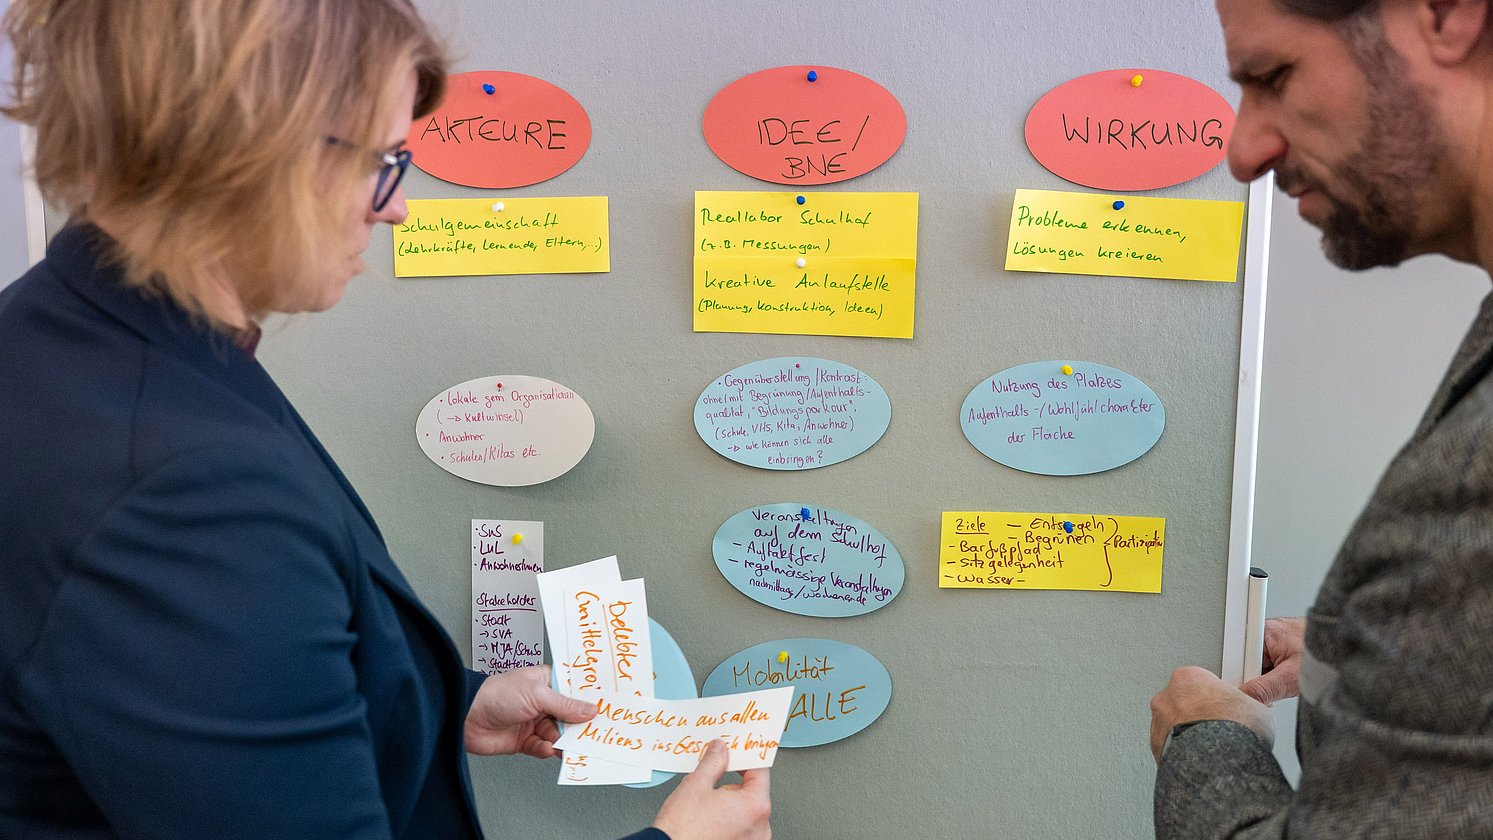 AKTEURE
IDEE/
BNE
WIRKUNG
Schulgemeinschaft
(Lehrkräfte, Lernende, Eltern,...)
Reallabor Schulhof
(z.B. Messungen)
Kreative Anlaufstelle
(Planung, Konstruktion, Ideen)
Probleme erkennen,
Lösungen kreieren
• Lokale gem. Organisationen
(→ Kulturinsel)
• Anwohner
• Schulen/Kitas etc.
• Gegenüberstellung/Kontrast:
ohne/mit Begrünung/Aufenthalts-
qualität, "Bildungsparkour",
(Schule, VHS, Kita, Anwohner)
→ wie können sich alle
einbringen?
Nutzung des Platzes
Aufenthalts-/Wohlfühlcharakter
der Fläche
• SuS
• LuL
• AnwohnerInnen
Stakeholder
• Stadt
→ SVA
→ MJA/SchuSo
→ Stadtteilzen
Veranstaltungen
auf dem Schulhof
- Auftaktfest
- regelmässige Veranstaltungen
nachmittag/Wochenende
Ziele - Entsiegeln
- Begrünen
- Barfußpfad
- Sitzgelegenheit
- Wasser -
Partizipativ
Belebter
(mittelgroß
Menschen aus allen
Milieus ins Gespräch bringen
Mobilität
ALLE